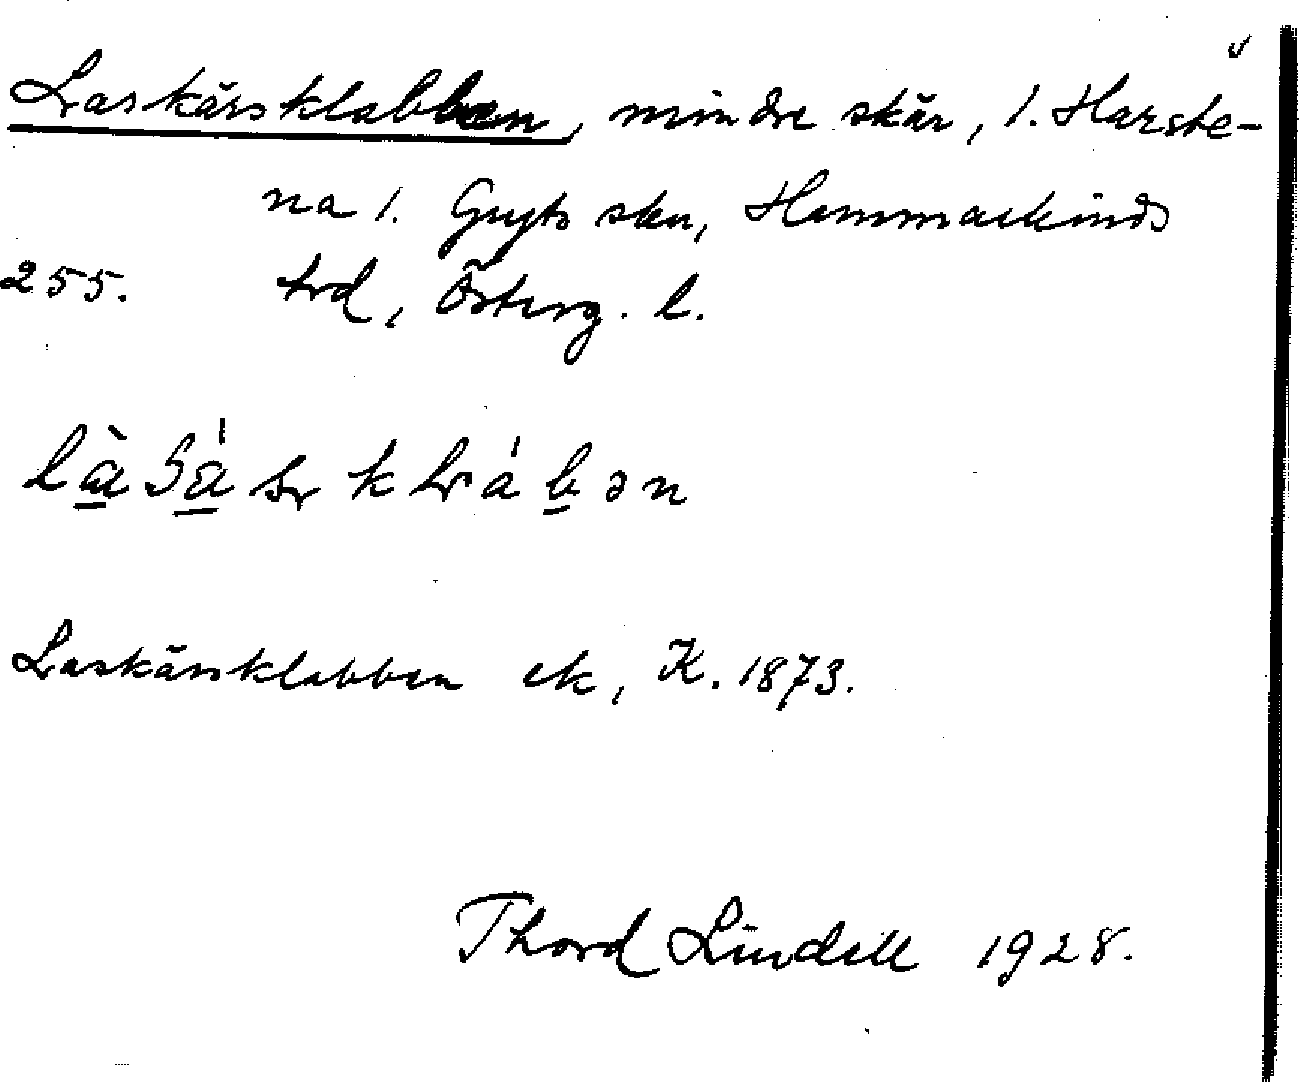 Laskärsklabben, mindre skär, l. Harste-
na l. Gryts skn, Hammarkinds
255. hrd, Österg. l.
Laskärsklabben ek, K. 1873.
Thord Lindell 1928.